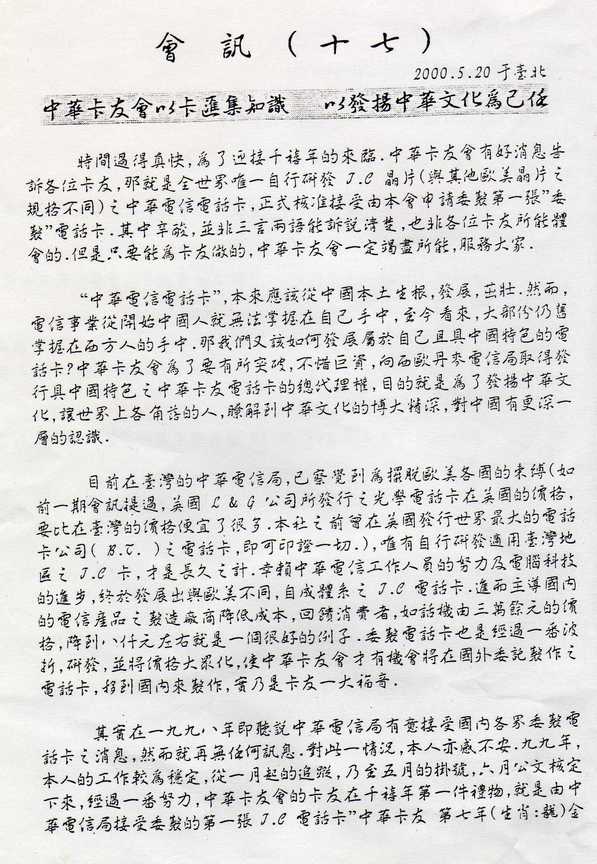 會 訊 ( 十 七 )
2000.5.20 于臺北
中華卡友會以卡匯集知識 以發揚中華文化為己任
時間過得真快,為了迎接千禧年的來臨.中華卡友會有好消息告
訴各位卡友,那就是全世界唯一自行研發 I.C 晶片(與其他歐美晶片之
規格不同)之中華電信電話卡,正式核准接受由本會申請委製第一張"委
製"電話卡.其中辛酸,並非三言兩語能訴說清楚,也非各位卡友所能體
會的.但是只要能為卡友做的,中華卡友會一定竭盡所能,服務大家.
"中華電信電話卡",本來應該從中國本土生根,發展,茁壯.然而,
電信事業從開始中國人就無法掌握在自己手中,至今看來,大部份仍舊
掌握在西方人的手中.那我們又該如何發展屬於自己且具中國特色的電
話卡?中華卡友會為了要有所突破,不惜巨資,向西歐丹麥電信局取得發
行具中國特色之中華卡友電話卡的總代理權,目的就是為了發揚中華文
化,讓世界上各角落的人,瞭解到中華文化的博大精深,對中國有更深一
層的認識.
目前在臺灣的中華電信局,已察覺到為擺脫歐美各國的束縛(如
前一期會訊提過,英國 L & G 公司所發行之光學電話卡在英國的價格,
要比在臺灣的價格便宜了很多.本社之前曾在英國發行世界最大的電話
卡公司( B.T. )之電話卡,即可印證一切.),唯有自行研發適用臺灣地
區之 I.C 卡,才是長久之計.幸賴中華電信工作人員的努力及電腦科技
的進步,終於發展出與歐美不同,自成體系之 I.C 電話卡.進而主導國內
的電信產品之製造廠商降低成本,回饋消費者,如話機由三萬餘元的價
格,降到八仟元左右就是一個很好的例子.委製電話卡也是經過一番波
折,研發,並將價格大眾化,使中華卡友會才有機會將在國外委託製作之
電話卡,移到國內來製作,實乃是卡友一大福音.
其實在一九九八年即聽說中華電信局有意接受國內各界委製電
話卡之消息,然而就再無任何訊息.對此一情況,本人亦感不安.九九年,
本人的工作較為穩定,從一月起的追蹤,乃至五月的掛號,六月公文核定
下來,經過一番努力,中華卡友會的卡友在千禧年第一件禮物,就是由中
華電信局接受委製的第一張 I.C 電話卡"中華卡友 第七年(生肖:龍)金